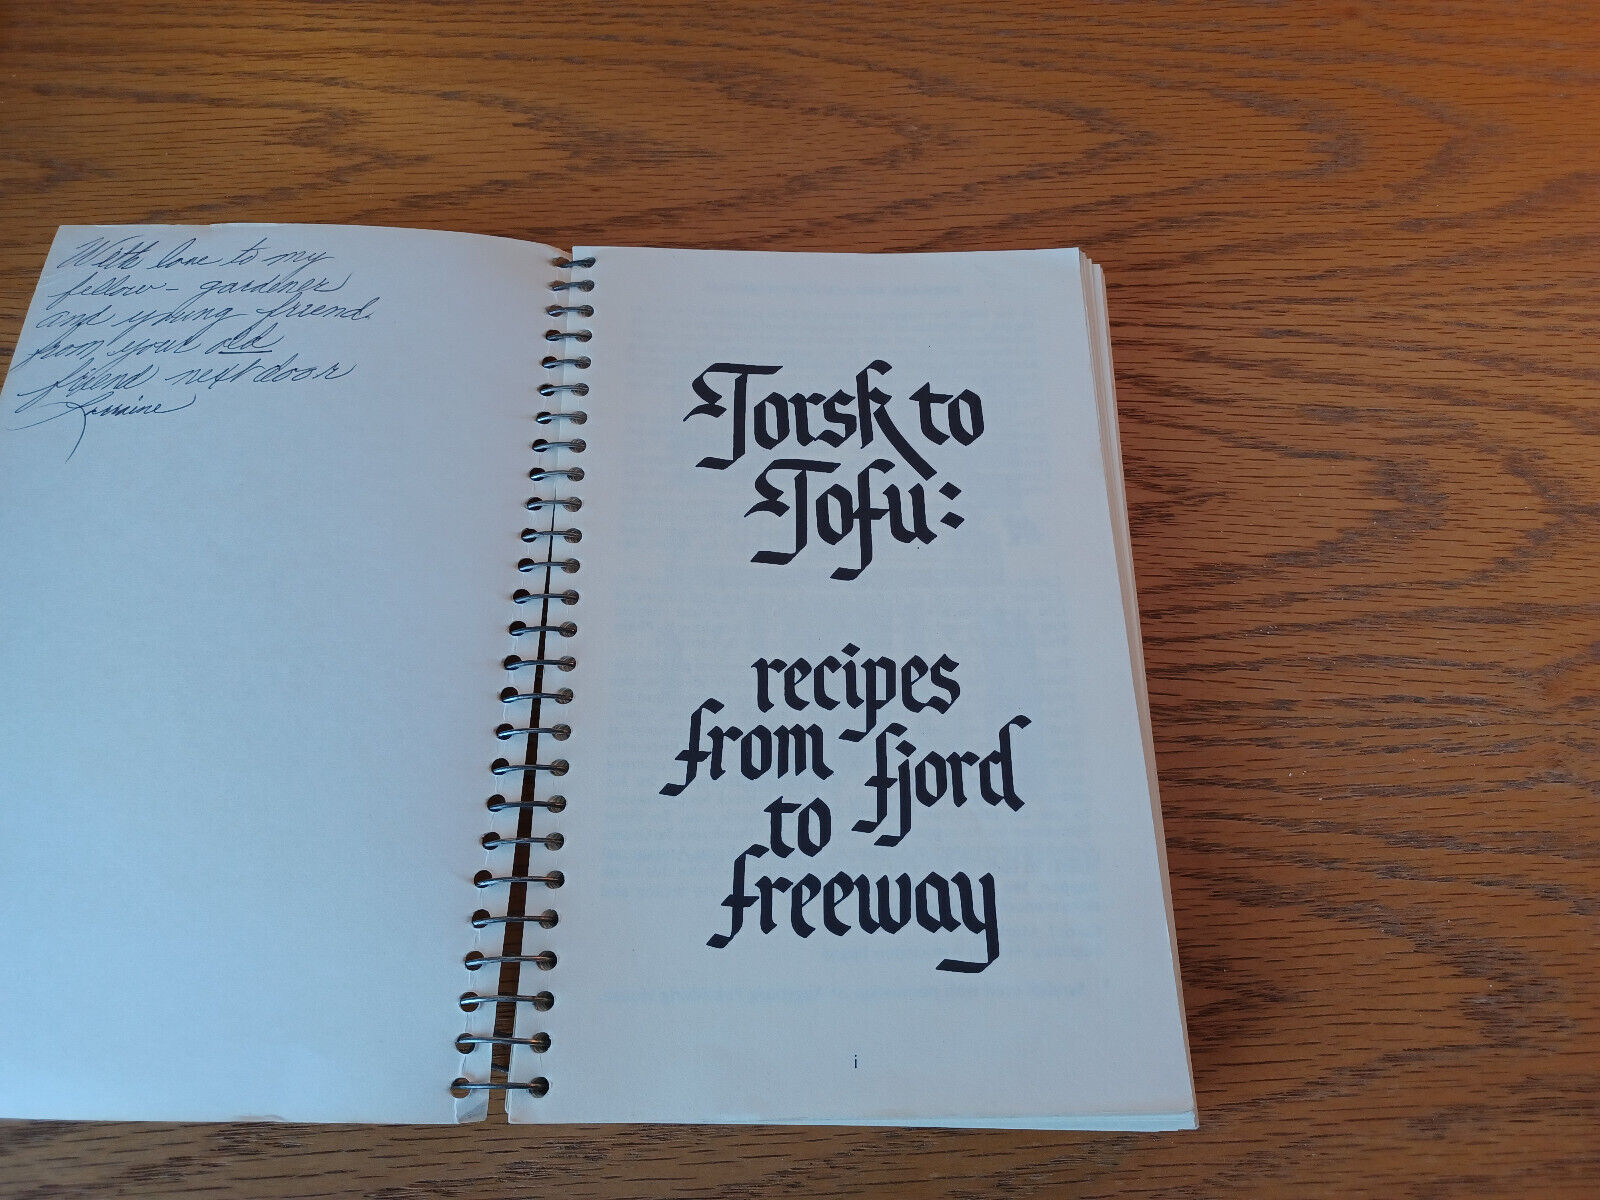 With love to my
fellow-gardener
and young friend
from your old
friend next door
Lorraine
Torsk to
Tofu:
recipes
from fjord
to
freeway
i